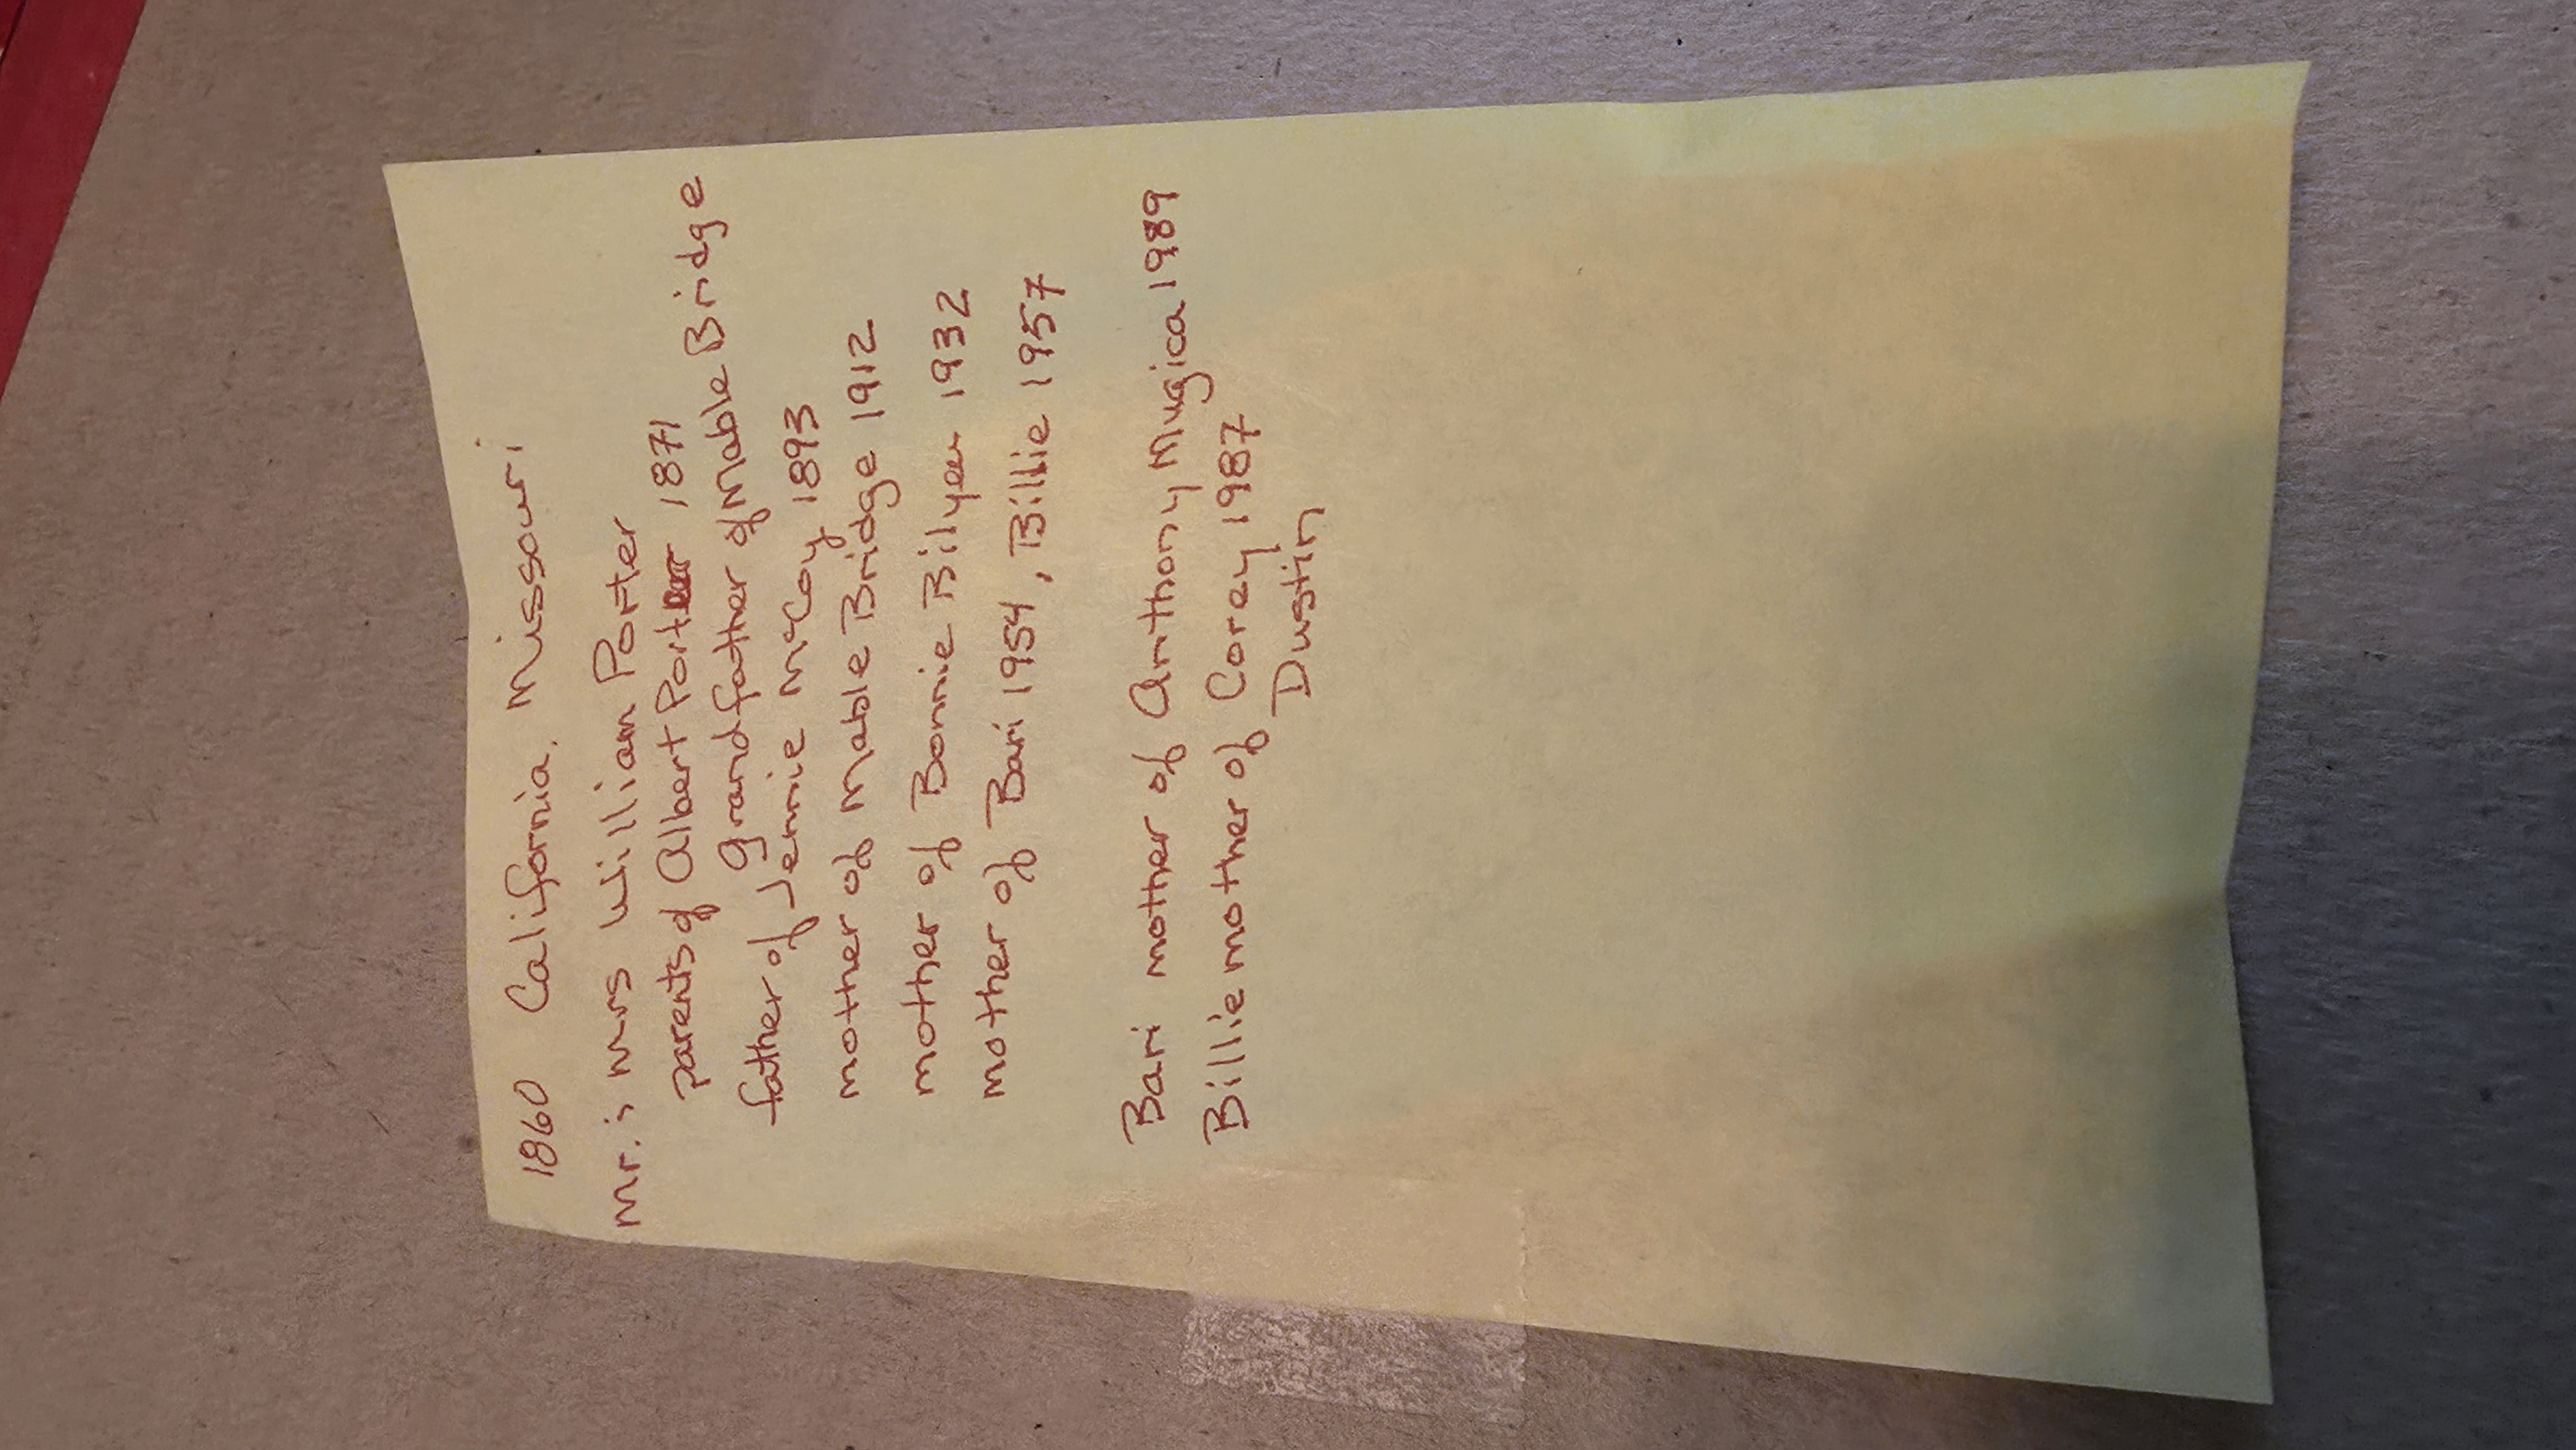 1860 California, Missouri
Mr. & Mrs William Porter
parents of Albert Porter 1871
grandfather of Mable Bridge
father of Jennie McCoy 1893
mother of Mable Bridge 1912
mother of Bonnie Bilyeu 1932
mother of Bari 1954, Billie 1957
Bari mother of Anthony Mugica 1989
Billie mother of Corey 1987
Dustin